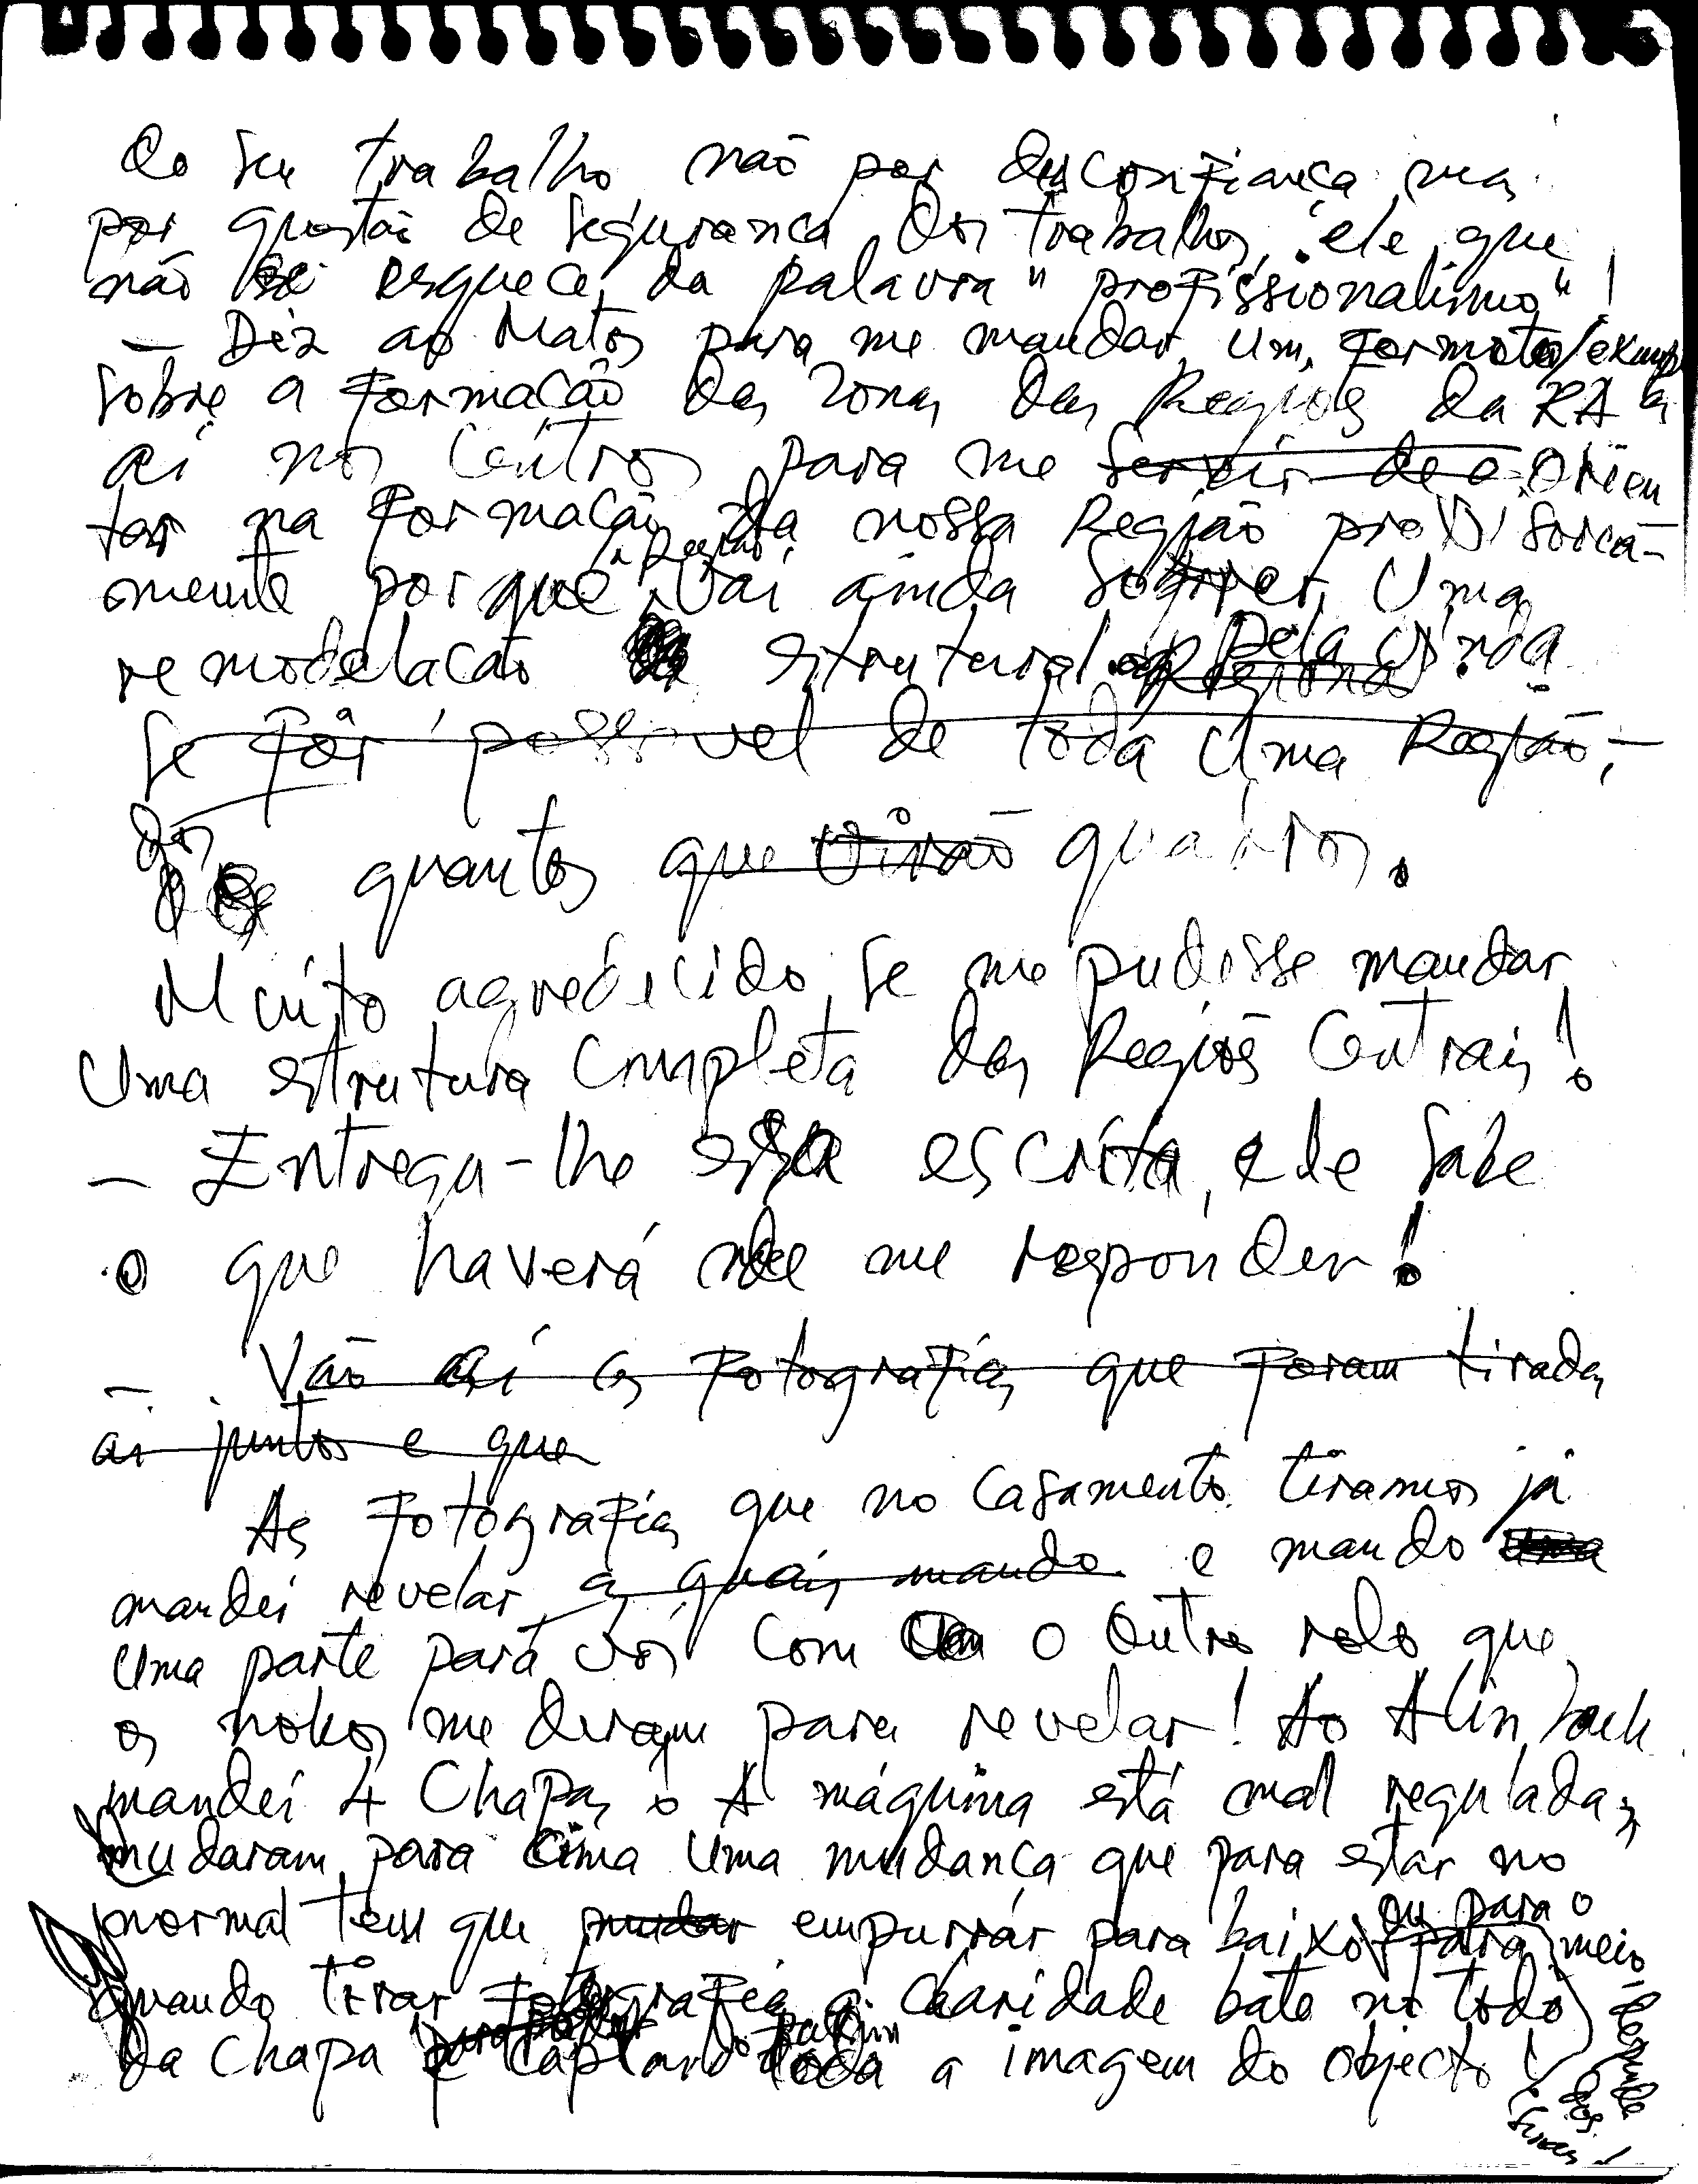 do seu trabalho não por desconfiança mas
por questão de segurança dos trabalhos, ele que
não se esquece da palavra "profissionalismo"!
— Diz ao Matos para me mandar um formato/exemp
sobre a formação das zonas das Regiões da RA
aí nos Centros para me servir de o orien
tar na formação da nossa Região provisorea-
mente porque a Região vai ainda sofrer uma
remodelacão estrutural pela vinda
Se fôr possivel de toda uma Região,
dos quantos que virão quadros.
Muito agredecido se me pudesse mandar
uma estrutura completa das Regiões Centrais!
— Entrega-lhe essa escrita, ele sabe
o que haverá de me responder!
— Vão aí as fotografias que foram tiradas
aí juntos e que
As fotografias que no casamento tiramos já
mandei revelar as quais mando e mando
uma parte para vós com o outro rolo que
os kokos me deram para revelar! Ao Alin
mandei 4 Chapas. A máquina está mal regulada,
mudaram para cima uma mudança que para estar no
normal tem que mudar empurrár para baixo ou para o meio,
quando tirar fotografia a claridade bate no todo
da Chapa e captando toda a imagem do objecto!